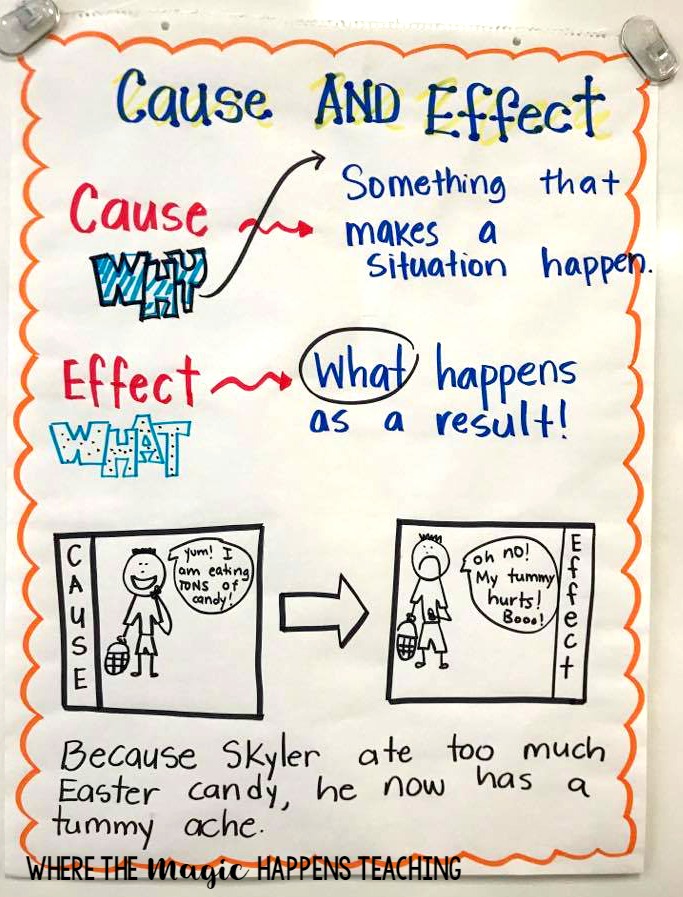 Cause AND Effect
Cause
WHY
Something that
makes a
situation happen.
Effect
WHAT
What happens
as a result!
CAUSE
yum! I
am eating
TONS of
candy!
oh no!
My tummy
hurts!
Booo!
Effect
Because Skyler ate too much
Easter candy, he now has a
tummy ache.
WHERE THE Magic HAPPENS TEACHING